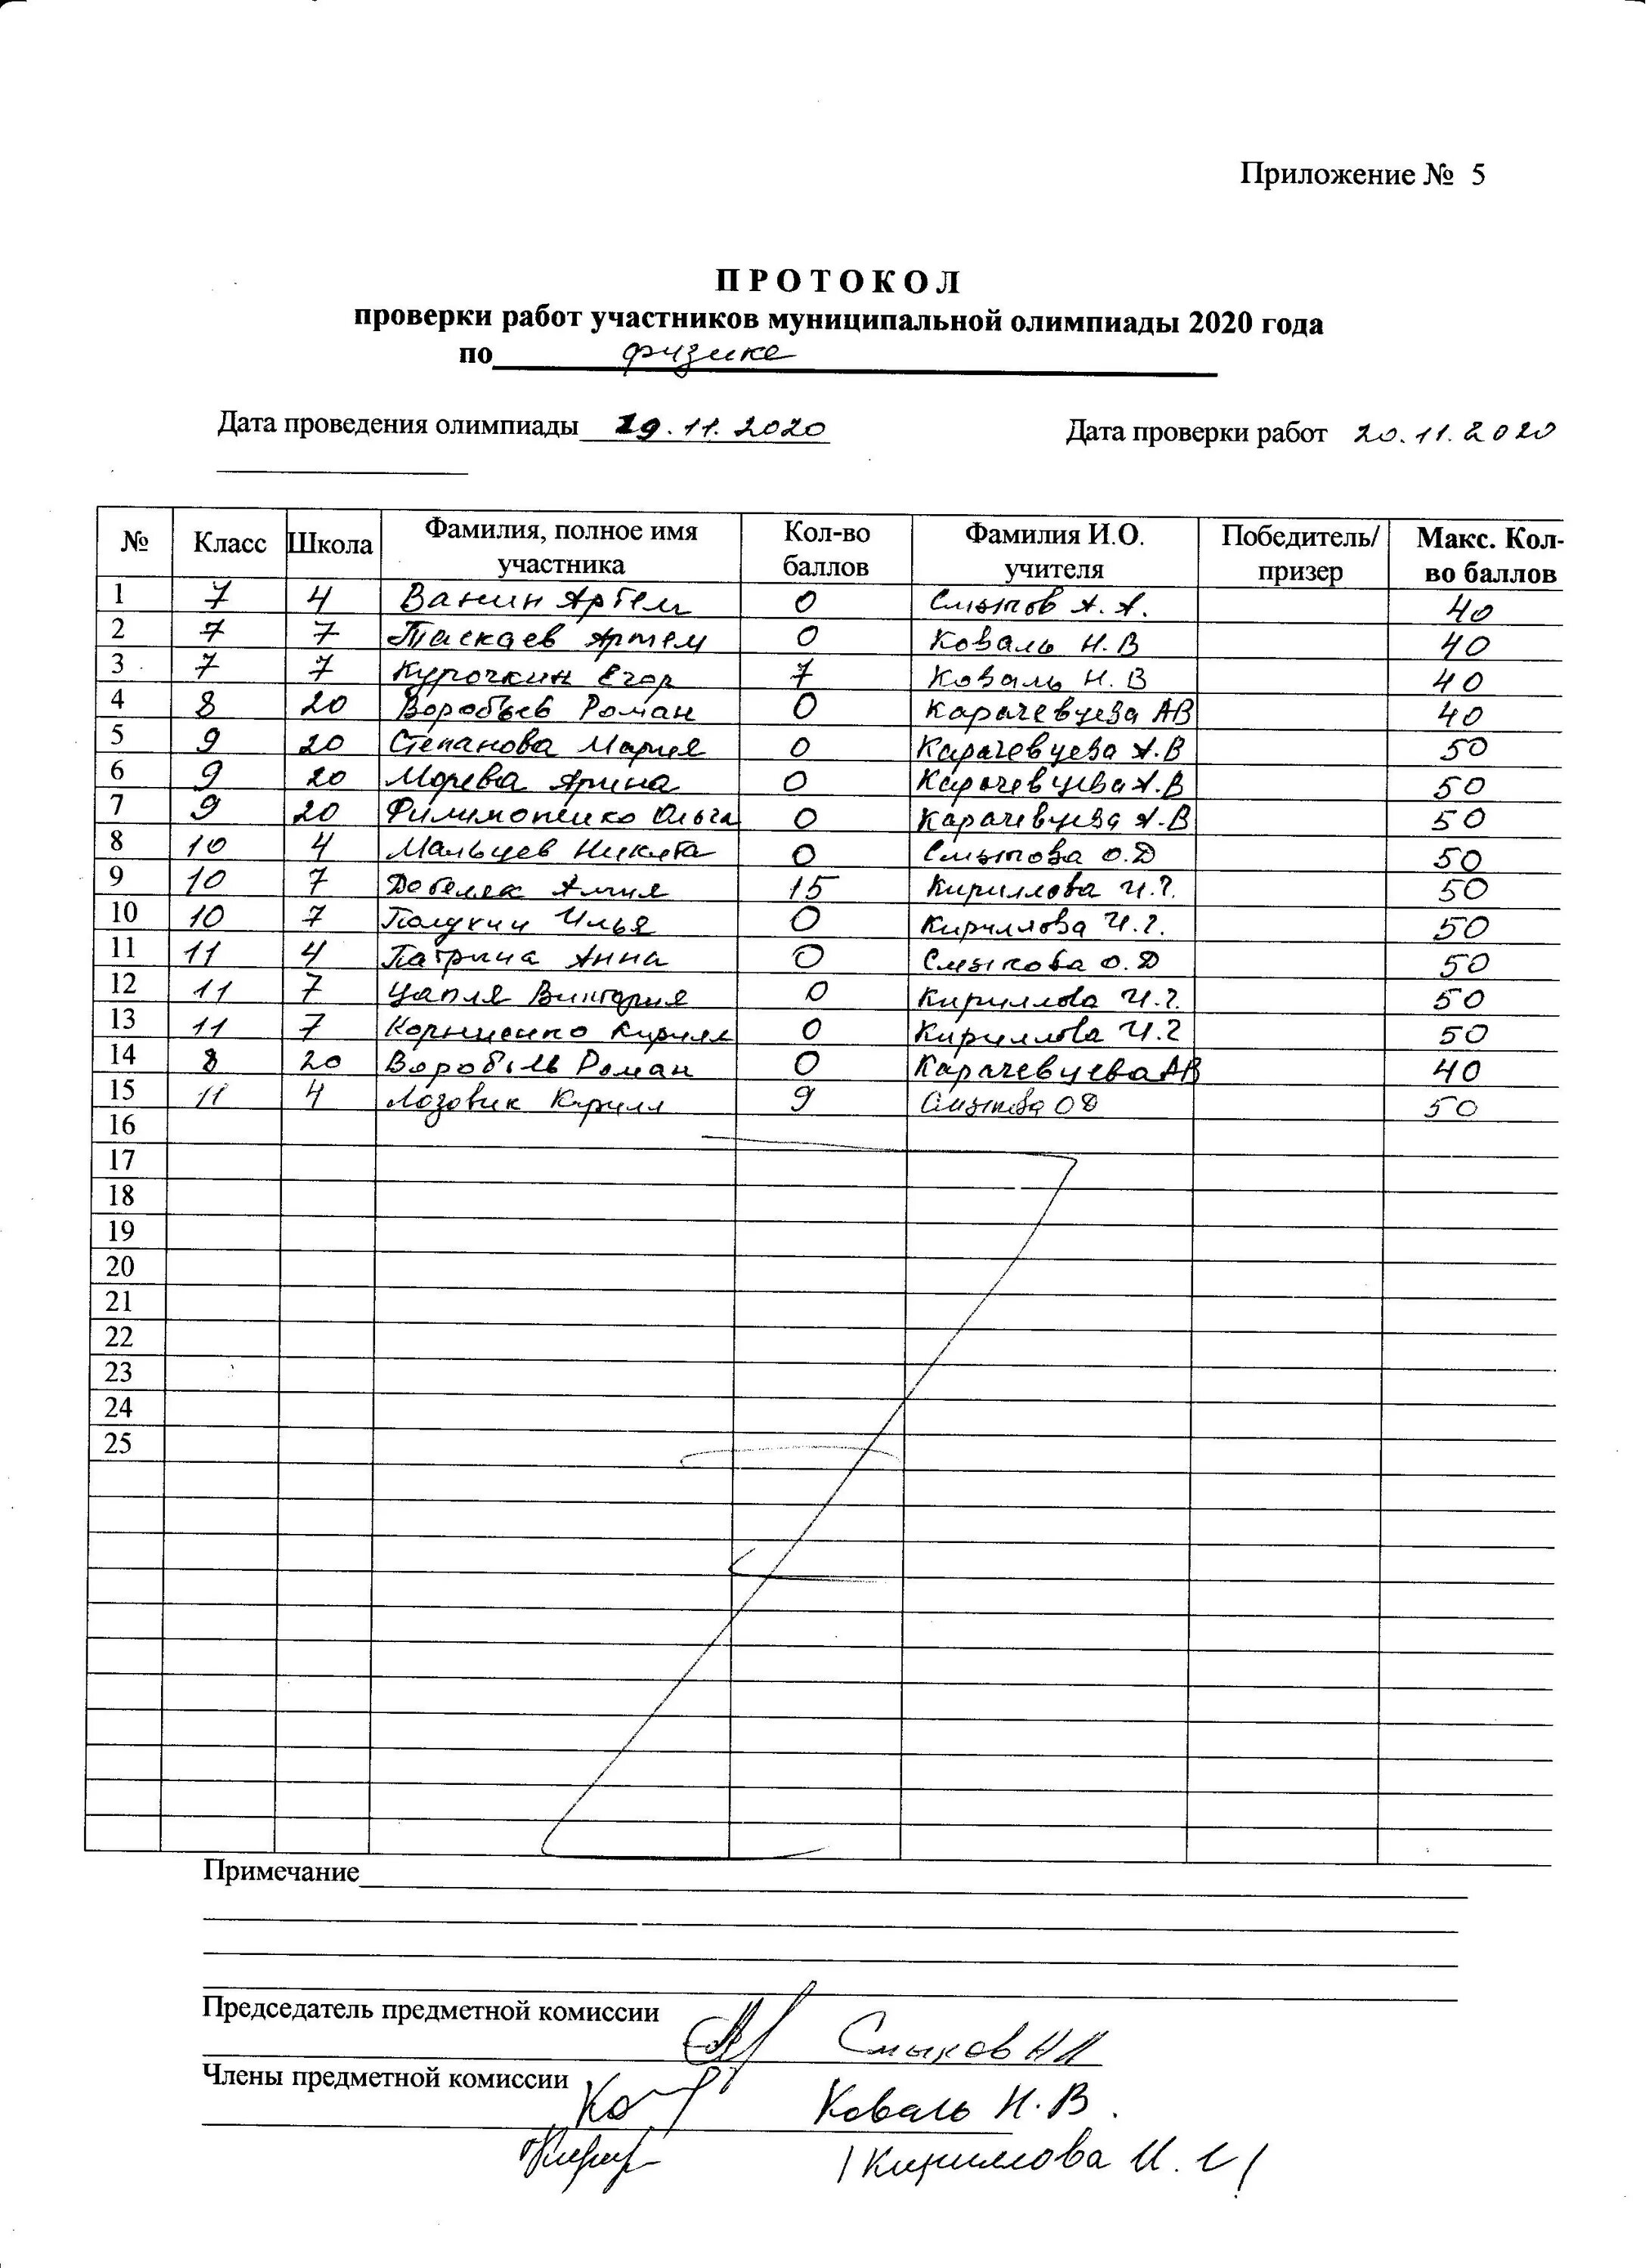 Приложение № 5
ПРОТОКОЛ
проверки работ участников муниципальной олимпиады 2020 года
по физике
Дата проведения олимпиады 19.11.2020 Дата проверки работ 20.11.2020
№ Класс Школа Фамилия, полное имя участника Кол-во баллов Фамилия И.О. учителя Победитель/ призер Макс. Кол-во баллов
1 7 4 Ванин Артем 0 Смыков А.А. 40
2 7 7 Таскаев Артем 0 Коваль Н.В 40
3 7 7 Курочкин Егор 7 Коваль Н.В 40
4 8 20 Воробьев Роман 0 Карачевцева АВ 40
5 9 20 Степанова Мария 0 Карачевцева А.В 50
6 9 20 Морева Арина 0 Карачевцева А.В 50
7 9 20 Филимоненко Ольга 0 Карачевцева А.В 50
8 10 4 Мальцев Никита 0 Смыкова О.Д 50
9 10 7 15 Кириллова И.Г. 50
10 10 7 Илья 0 Кириллова И.Г. 50
11 11 4 Патрина Анна 0 Смыкова О.Д 50
12 11 7 Цапля Виктория 0 Кириллова И.Г. 50
13 11 7 Корниенко Кирилл 0 Кириллова И.Г 50
14 8 20 Воробьев Роман 0 Карачевцева АВ 40
15 11 4 Лозовик Кирилл 9 Смыкова ОД 50
16
17
18
19
20
21
22
23
24
25
Примечание
Председатель предметной комиссии
Смыков
Члены предметной комиссии
Коваль Н.В.
/Кириллова И.Г/